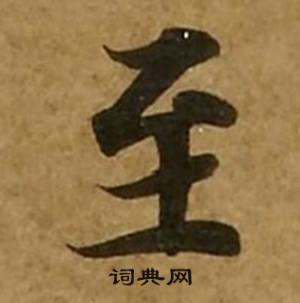 至
词典网